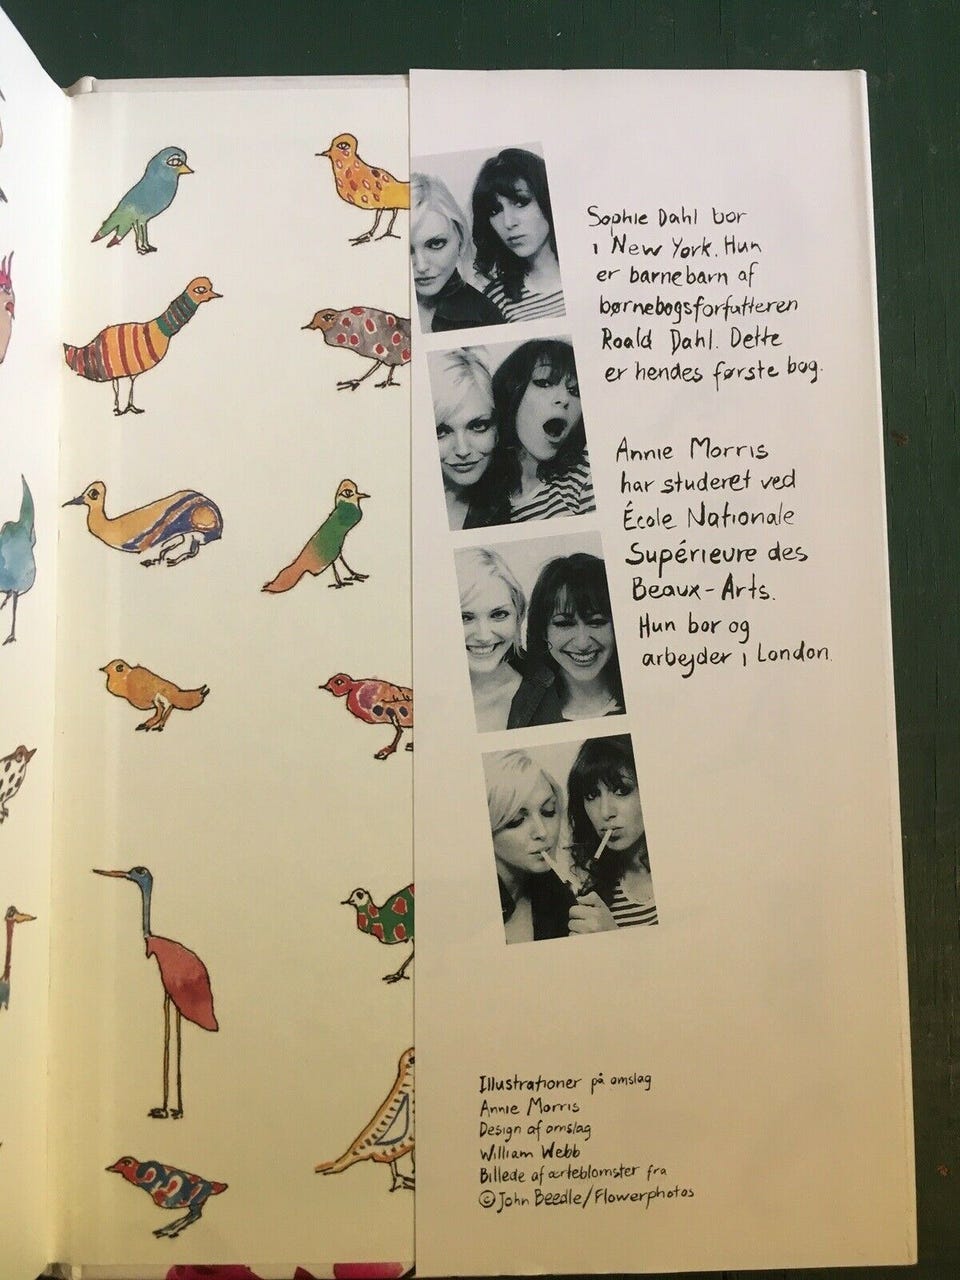 Sophie Dahl bor
i New York. Hun
er barnebarn af
børnebogsforfatteren
Roald Dahl. Dette
er hendes første bog.
Annie Morris
har studeret ved
École Nationale
Supérieure des
Beaux-Arts.
Hun bor og
arbejder i London.
Illustrationer på omslag
Annie Morris
Design af omslag
William Webb
Billede af ærteblomster fra
© John Beedle/Flowerphotos